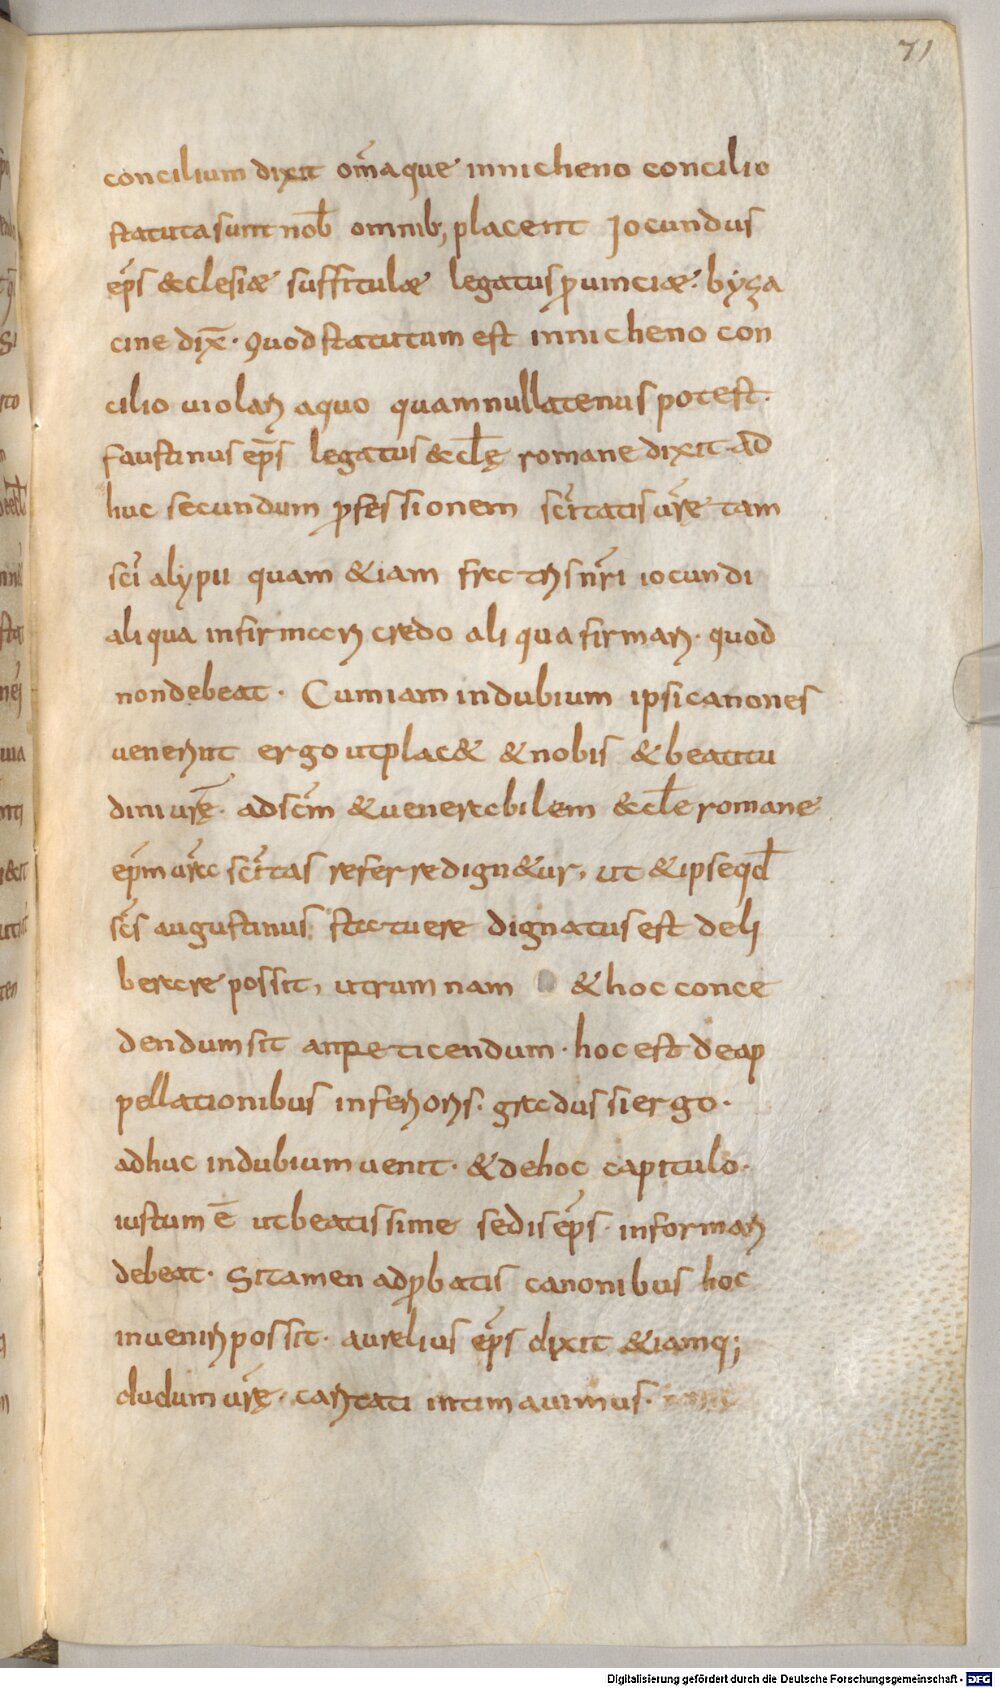 71
concilium dixit om̄aque innicheno concilio
statuta sunt nob̄ omnib; placent Iocundus
ep̄s &clesiæ suffitulæ legatus ꝓuinciæ. byza
cine dix̄. Quod statutum est innicheno con
cilio uiolari aquo quam nullatenus potest.
faustinus ep̄s legatus &cl̄ę romane dixit. ad
huc secundum ꝓfessionem sc̄itatis ur̄e tam
sc̄i alypii quam &iam fratris nr̄i iocundi
aliqua infirmari credo aliqua firmari. quod
nondebeat. Cum iam indubium ipsi canones
uenerint ergo ut plac& & nobis & beatitu
dini ur̄ę. ad sc̄m & uenerabilem &cl̄e romane
ep̄m ur̄a sc̄itas referre dign&ur, ut & ipse qd̄
sc̄s augustinus statuere dignatus est deli
berare possit, utrum nam & hoc conce
dendum sit an peticendum. hoc est de ap
pellationibus inferioris. gradus si ergo.
adhuc indubium uenit. & dehoc capitulo.
iustum ē ut beatissime sedis ep̄s. informari
debeat. Si tamen adꝓbatis canonibus hoc
inueniri possit. aurelius ep̄s dixit &iamq;
dudum ur̄ę. caritati intimauimus.
Digitalisierung gefördert durch die Deutsche Forschungsgemeinschaft - DFG